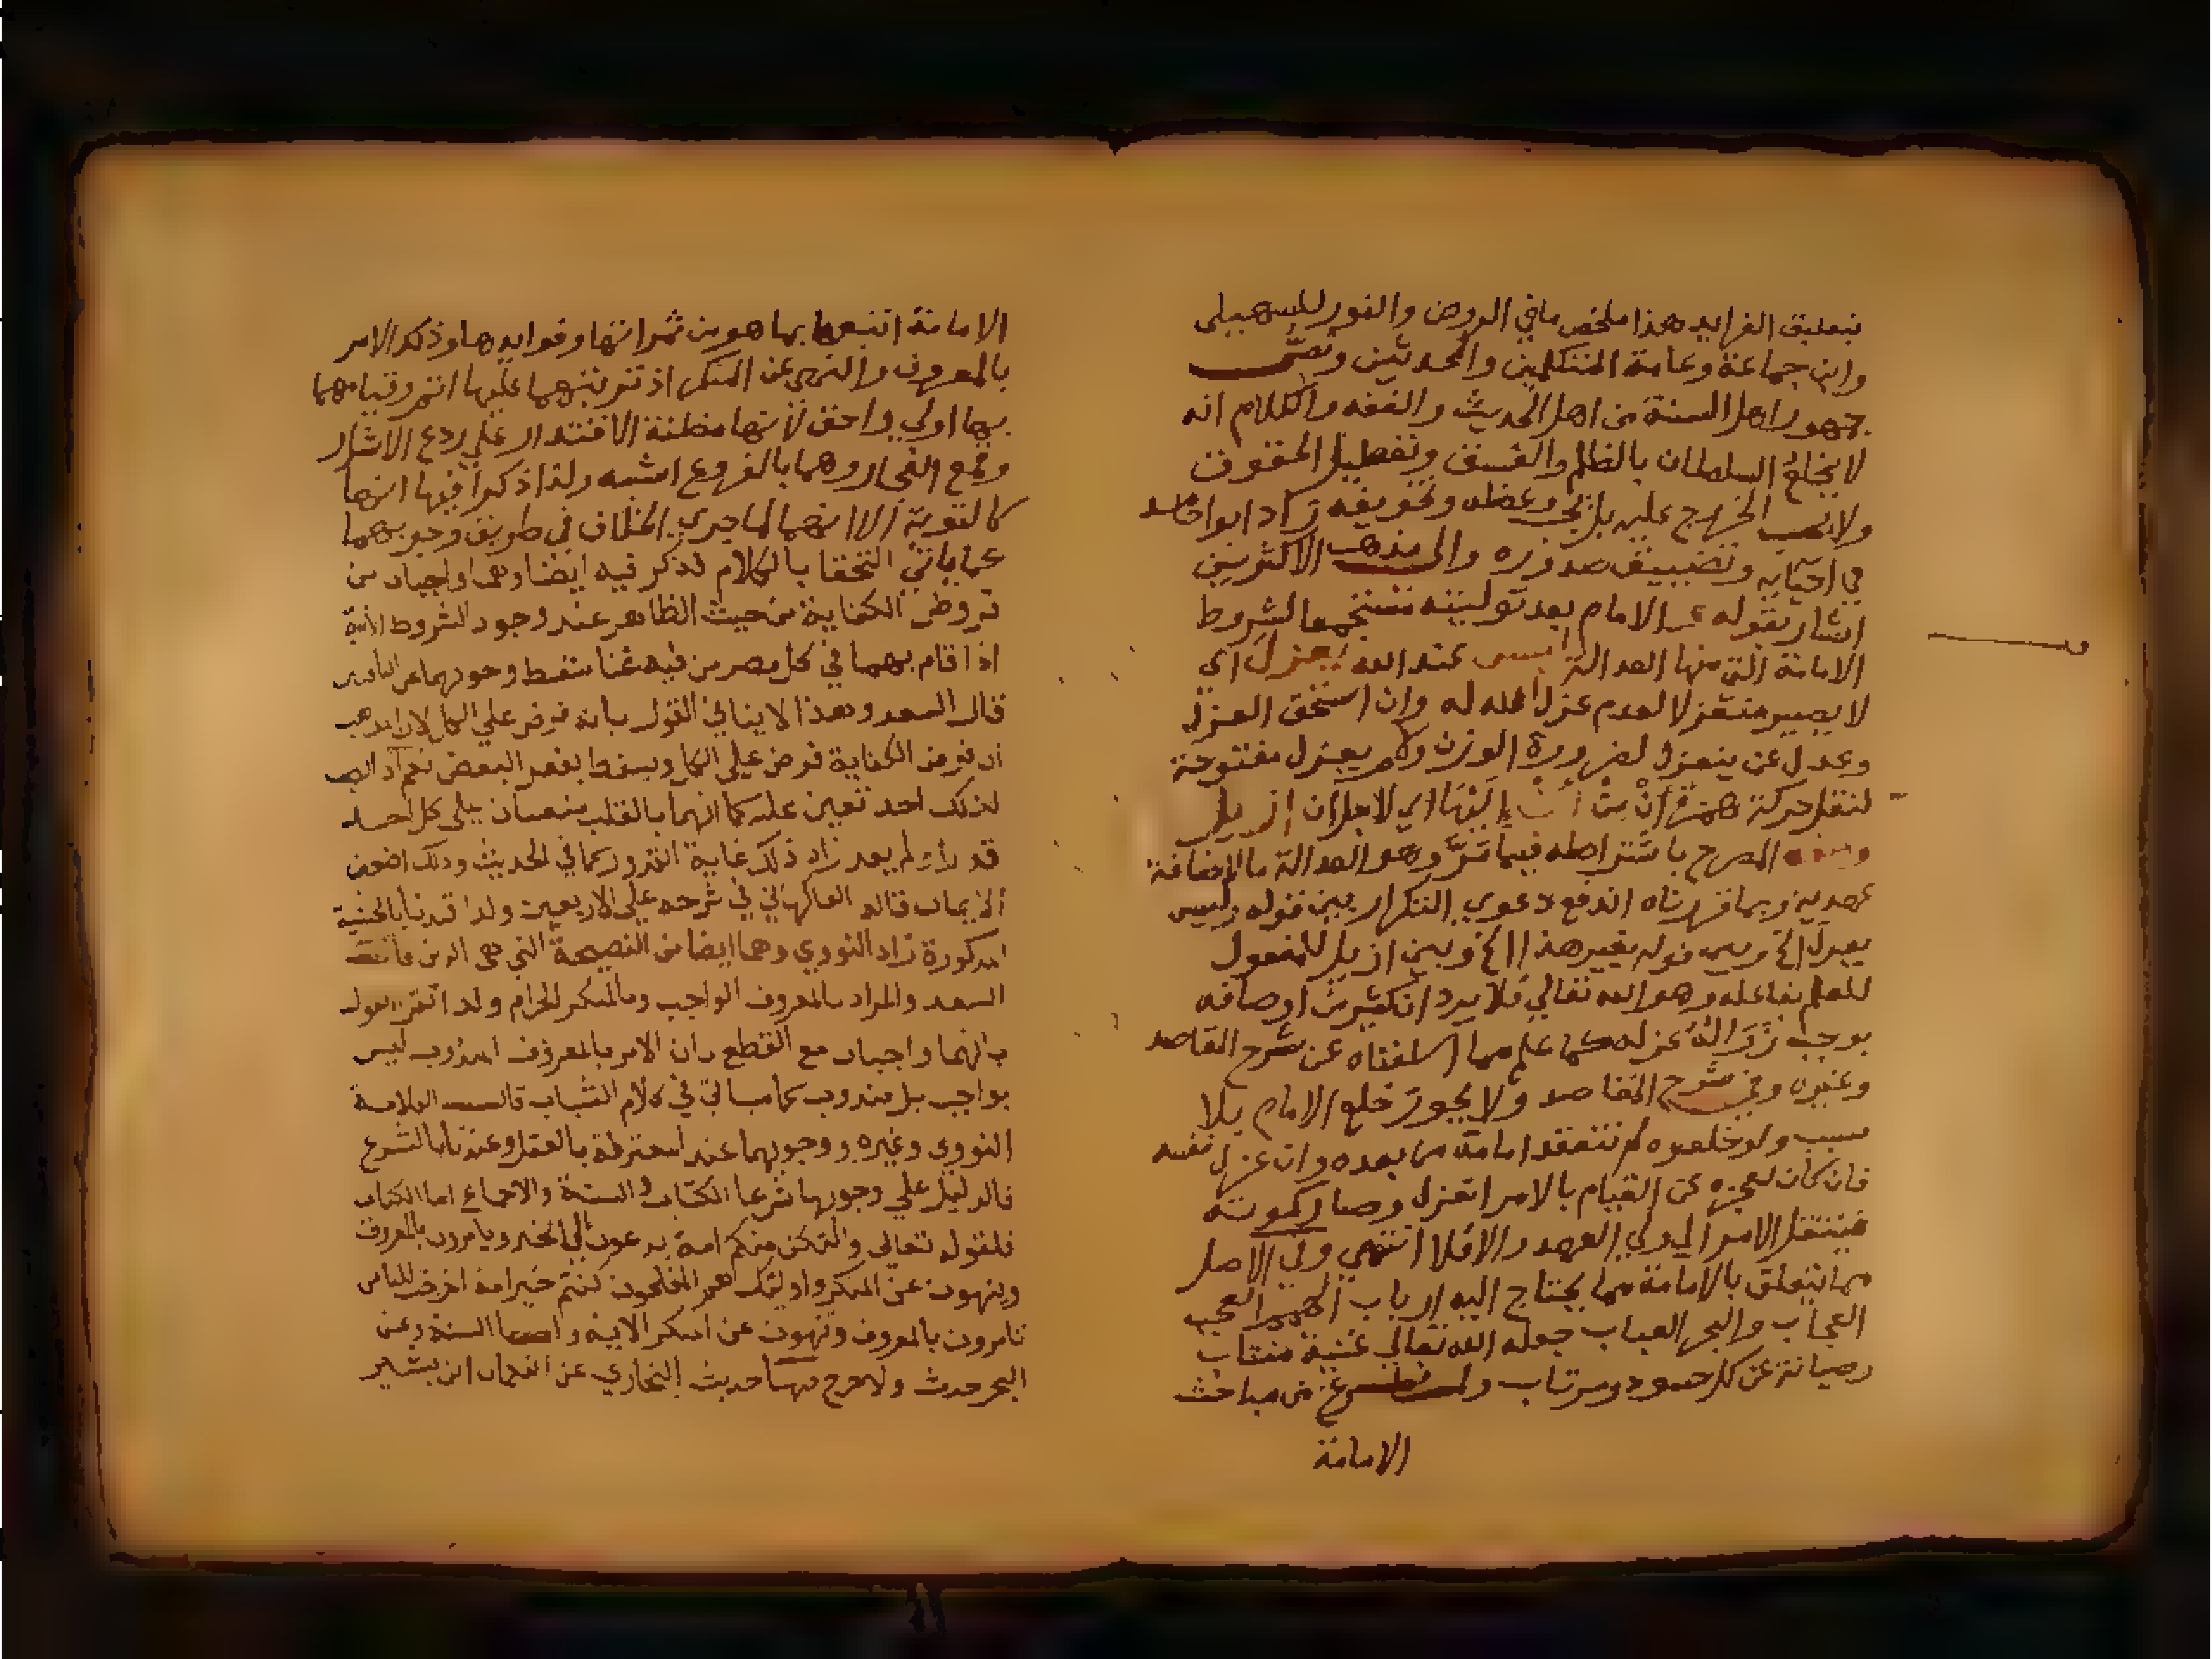 بتعليق الفرايد هذا ملخص مافي الروض والنور للسهيلي
وابن جماعة وعامة المتكلمين والمحدثين ونص
جمهور اهل السنة من اهل الحديث والفقه والكلام انه
لا يخلع السلطان بالظلم والفسق وتعطيل الحقوق
ولا يجب الخروج عليه بل يجب وعظه وتخويفه
في وتضييق صدوره والى مذهب الاكثرين
اشار بقوله الامام بعد توليته مستجمعا لشروط
الامامة التي منها العدالة ليس عند الله يعزل اي
لا يصير منعزلا لعدم عزل الله له وان استحق العزل
وعدل عن ينعزل لضرورة الوزن ولام يعزل مفتوحة
لنقل حركة همزة ان اي لاجل ان ازيل
وصفه المصرح باشتراطه فيما مر وهو العدالة فالاضافة
عهدية وبما قررناه اندفع دعوى التكرار بين قوله وليس
يعزل الخ وبين قوله بغير هذا الخ وبين ازيل للمفعول
للعلم بفاعله وهو الله تعالي فلا يرد ان اوصافه
يوجب عزله كما علم مما اسلفناه عن شرح المقاصد
وغيره وفي شرح المقاصد ولا يجوز خلع الامام بلا
سبب ولو خلعوه لم تنعقد امامة من بعده وان عزل نفسه
فان كان لعجزه عن القيام بالامر انعزل وصار كموته
فينتقل الامر الي ولي العهد والا فلا انتهي وفي الاصل
مما يتعلق بالامامة مما يحتاج اليه ارباب العجب
العجاب والبحر العباب جعله الله تعالي غنية منتاب
وصيانة عن كل حسود ومرتاب ولما فرغ من مباحث
الامامة
الامامة اتبعها بما هو من ثمراتها وفوايدها وذكر الامر
بالمعروف والنهي عن المنكر اذ ترتبهما عليها اتم وقيامهما
بها اولي واحق لانها مظنة الاقتدار علي ردع الاشرار
وقمع الفجار وهما بالفروع اشبه ولذا ذكرا فيها انهما
كالتوبة الا انهما لما جري الخلاف في طريق وجوبهما
كما ياتي التحقا بالكلام فذكر فيه ايضا وهما واجبان من
فروض الكفاية من حيث الظاهر عند وجود الشروط الاتية
اذا قام بهما في كل مصر من فيه غنا سقط وجوبهما عن الباقين
قال السعد وهذا لا ينافي القول بانه فرض علي الكل لان المذهب
ان فرض الكفاية فرض علي الكل ويسقط بفعل البعض نعم اذا نصب
لذلك احد تعين عليه كما انهما بالقلب يتعينان علي كل احد
قدر او لم يقدر زاد ذلك غاية كما في الحديث وذلك اضعف
الايمان قاله الفاكهاني في شرحه علي الاربعين ولذا قيدنا بالحيثية
المذكورة زاد النووي وهما ايضا من النصيحة التي هي الدين
السعد والمراد بالمعروف الواجب وبالمنكر الحرام ولذا
بانهما واجبان مع القطع بان الامر بالمعروف المندوب ليس
بواجب بل مندوب كما سياتي في كلام الشهاب قال العلامة
النووي وغيره ووجوبهما عند المعتزلة بالعقل وعندنا بالشرع
فالدليل علي وجوبها شرعا الكتاب والسنة والاجماع اما الكتاب
فلقوله تعالى ولتكن منكم امة يدعون الي الخير ويامرون بالمعروف
وينهون عن المنكر واولئك هم المفلحون كنتم خير امة اخرجت للناس
تامرون بالمعروف وتنهون عن المنكر الاية واما السنة فعن
البحر حدث ولا حرج منها حديث البخاري عن النعمان ابن بشير